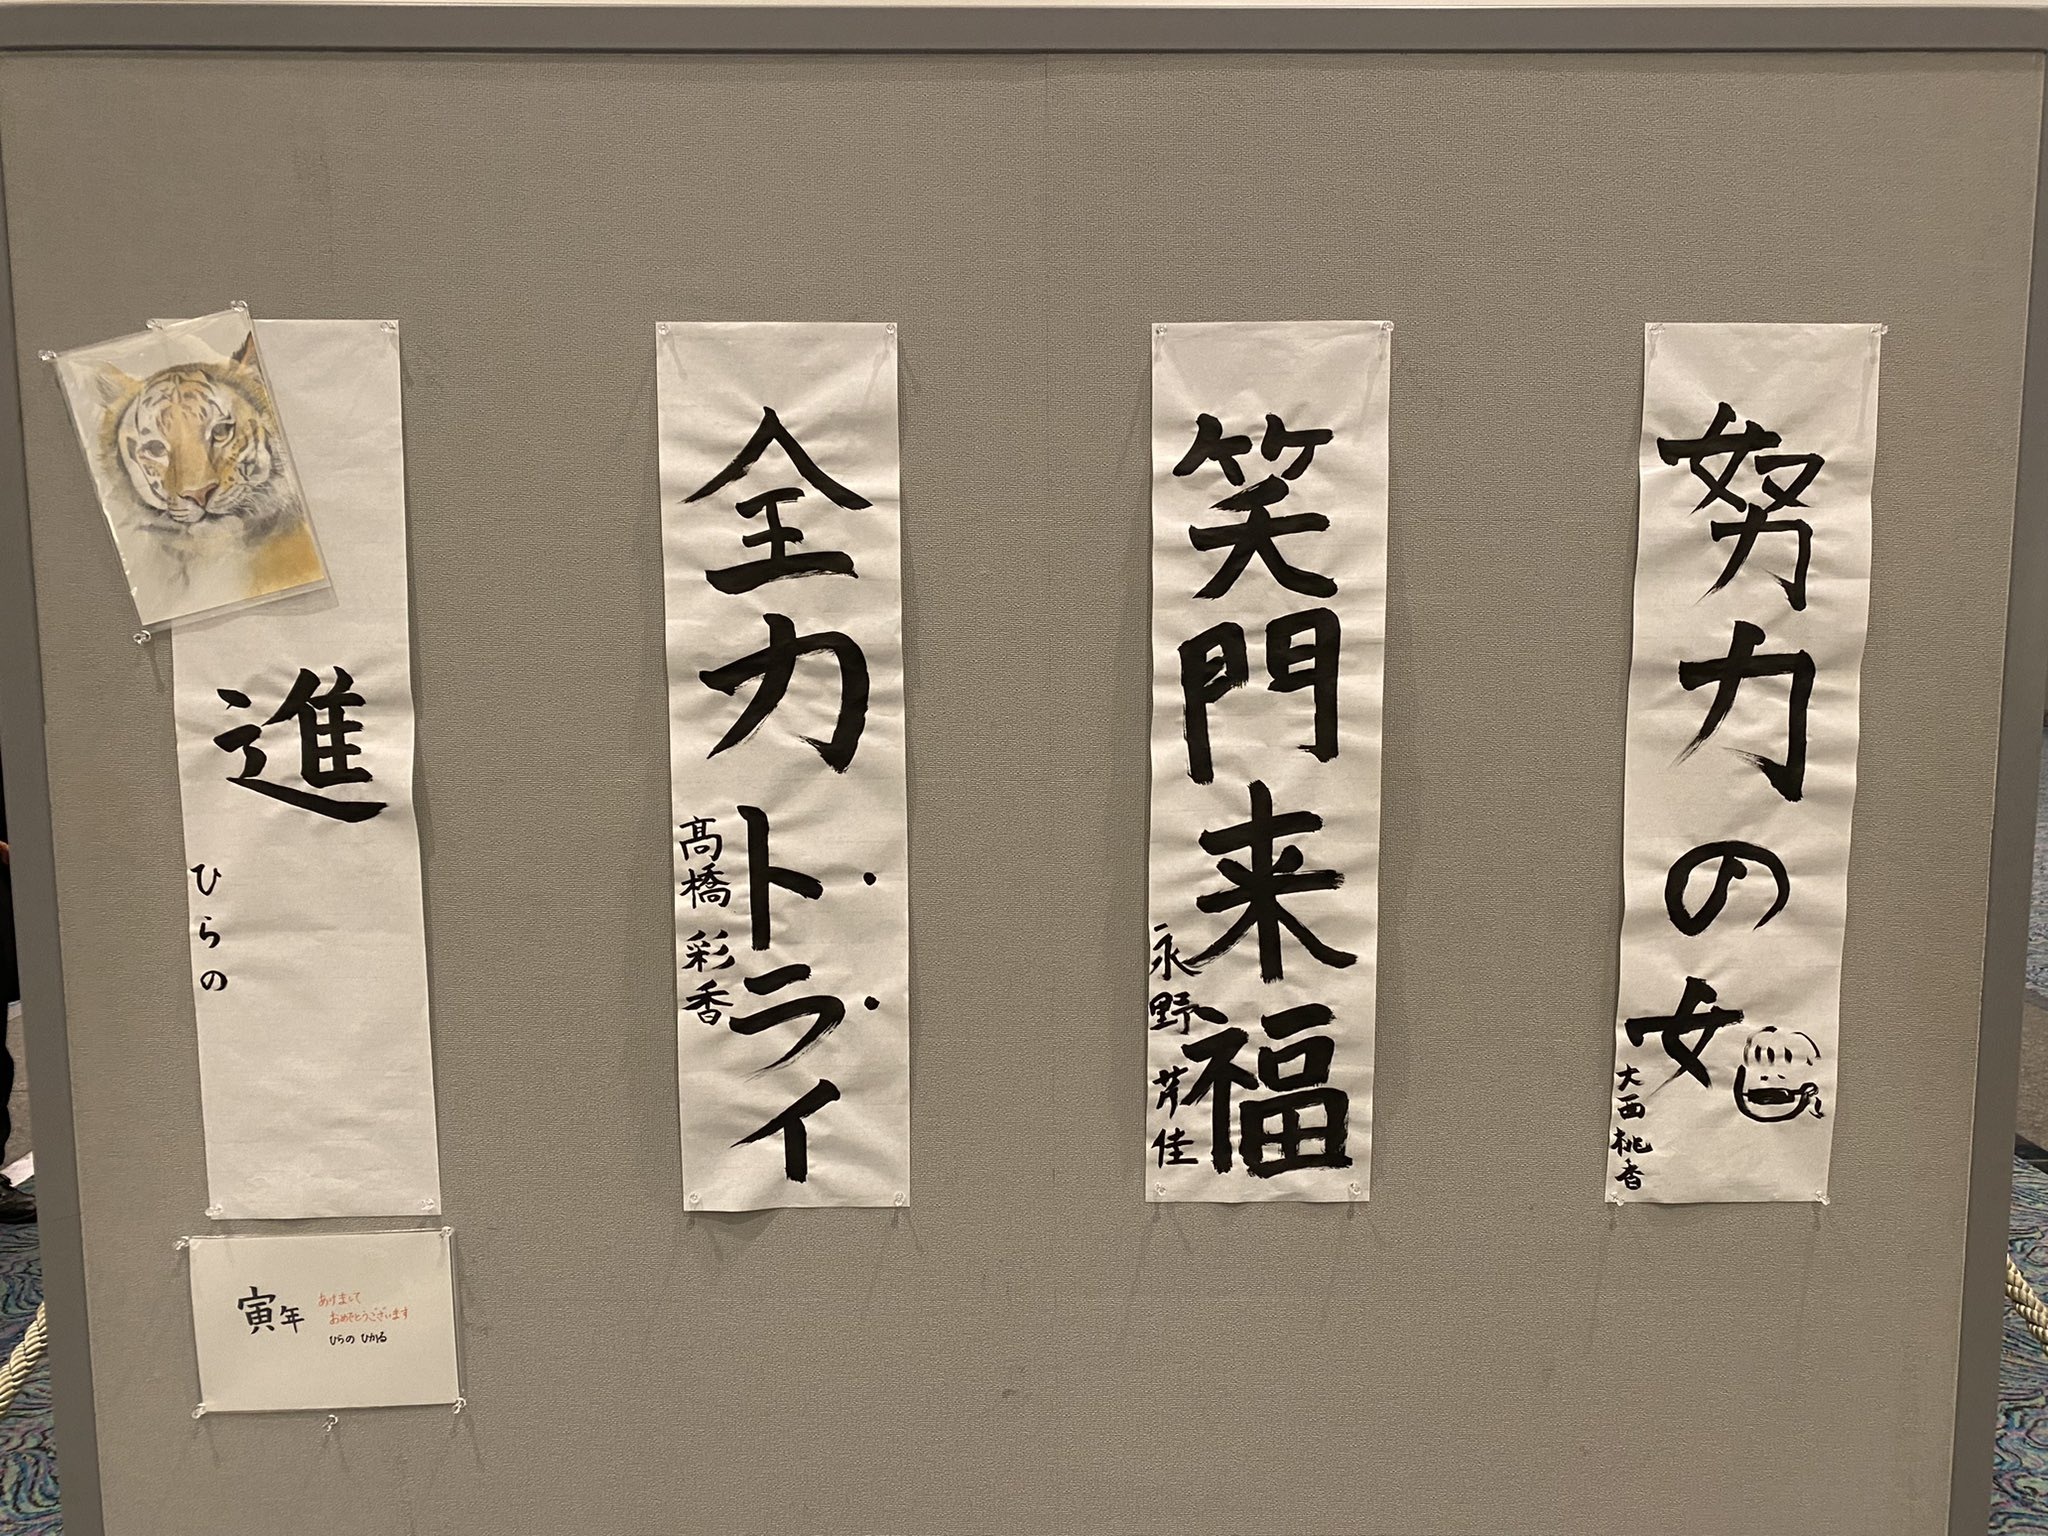 努力の女
大西桃香
笑門来福
永野芹佳
全力トライ
髙橋彩香
進
ひらの
寅年
あけまして
おめでとうございます
ひらの ひかる